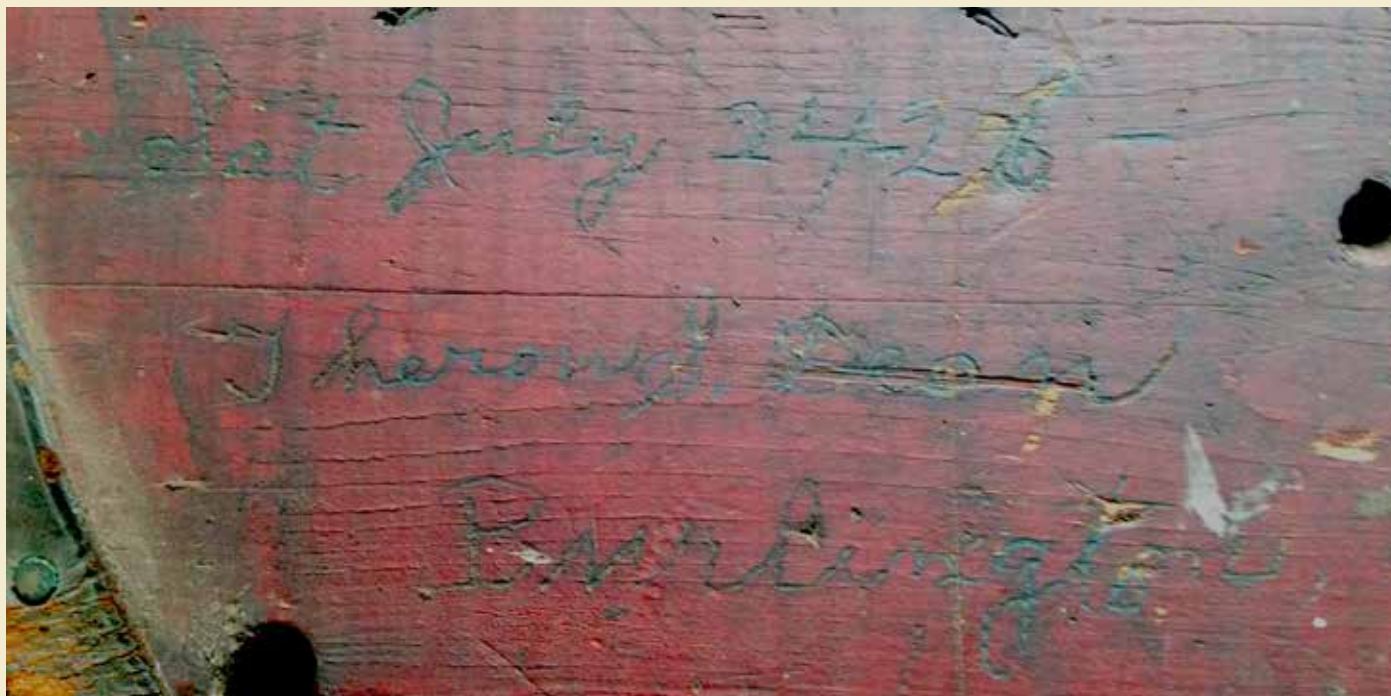 Sat July 24 26 -
Theron J. Dean
Burlington